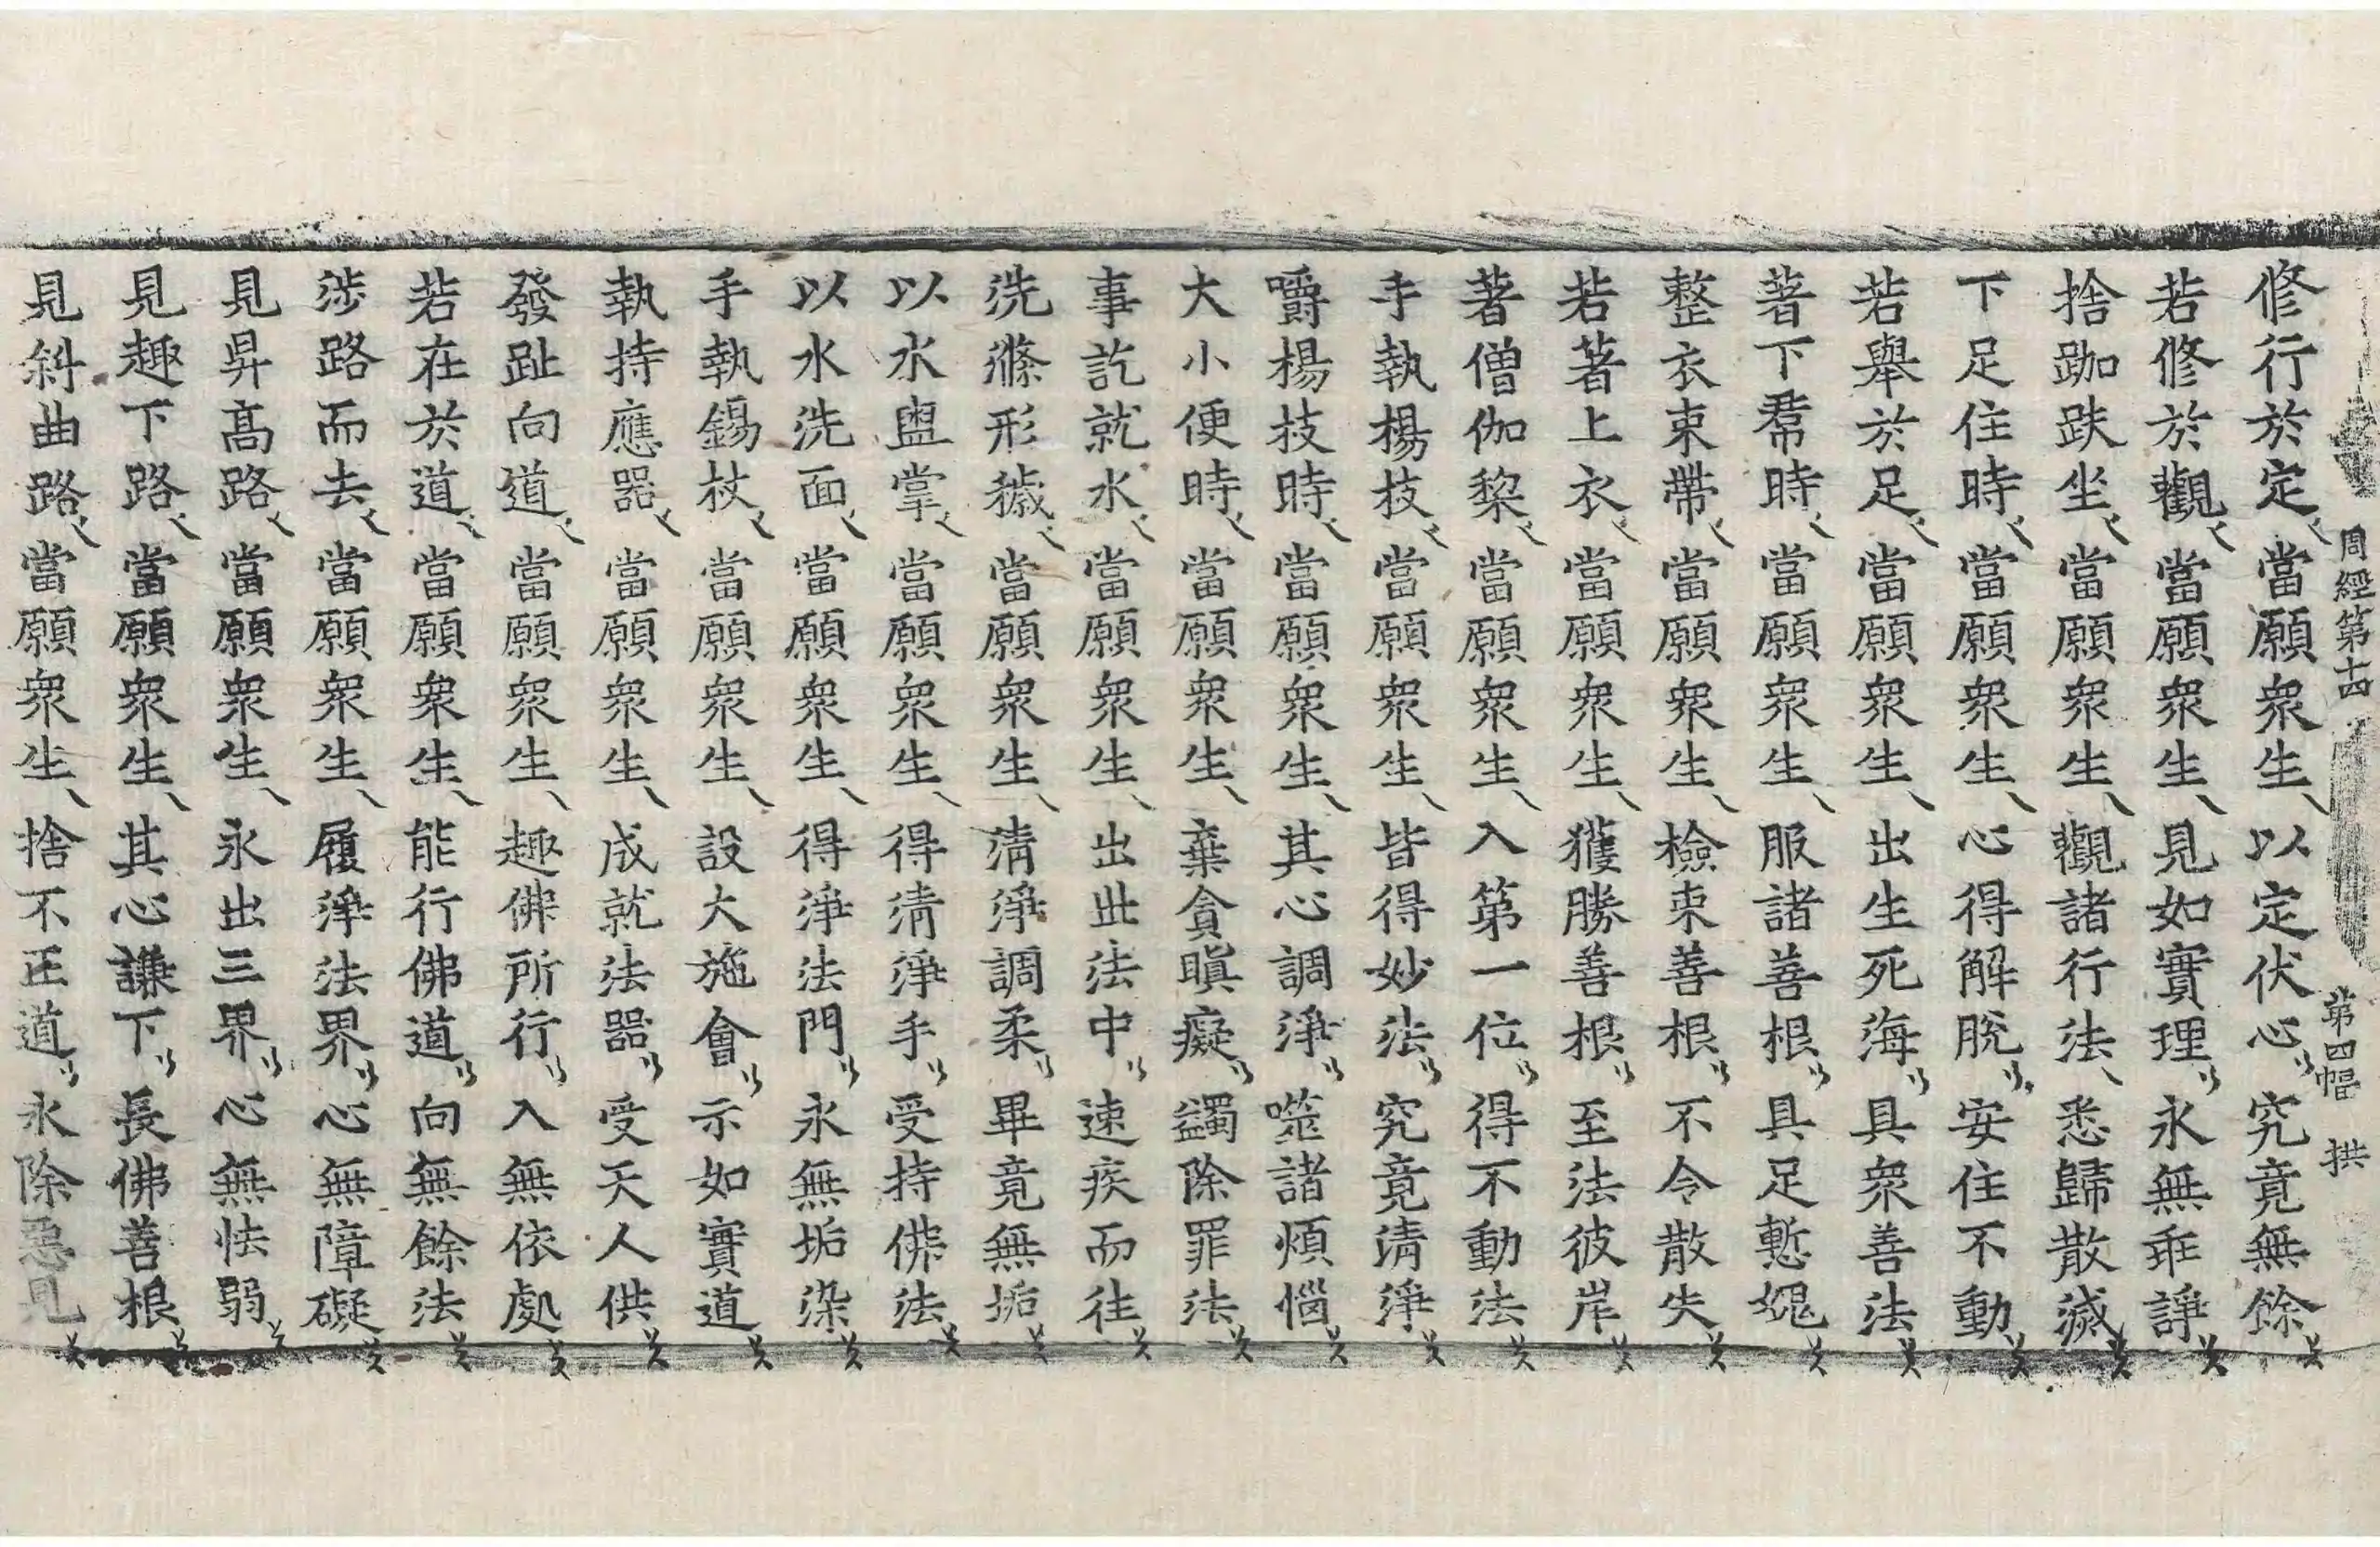 周經第十四 第四幅 拱
修行於定 當願衆生 以定伏心 究竟無餘
若修於觀 當願衆生 見如實理 永無乖諍
捨跏趺坐 當願衆生 觀諸行法 悉歸散滅
下足住時 當願衆生 心得解脫 安住不動
若舉於足 當願衆生 出生死海 具衆善法
著下帬時 當願衆生 服諸善根 具足慙愧
整衣束帶 當願衆生 檢束善根 不令散失
若著上衣 當願衆生 獲勝善根 至法彼岸
著僧伽黎 當願衆生 入第一位 得不動法
手執楊枝 當願衆生 皆得妙法 究竟清淨
嚼楊枝時 當願衆生 其心調淨 噬諸煩惱
大小便時 當願衆生 棄貪瞋癡 蠲除罪法
事訖就水 當願衆生 出世法中 速疾而往
洗滌形穢 當願衆生 清淨調柔 畢竟無垢
以水盥掌 當願衆生 得清淨手 受持佛法
以水洗面 當願衆生 得淨法門 永無垢染
手執錫杖 當願衆生 設大施會 示如實道
執持應器 當願衆生 成就法器 受天人供
發趾向道 當願衆生 趣佛所行 入無依處
若在於道 當願衆生 能行佛道 向無餘法
涉路而去 當願衆生 履淨法界 心無障礙
見昇高路 當願衆生 永出三界 心無怯弱
見趣下路 當願衆生 其心謙下 長佛善根
見斜曲路 當願衆生 捨不正道 永除惡見